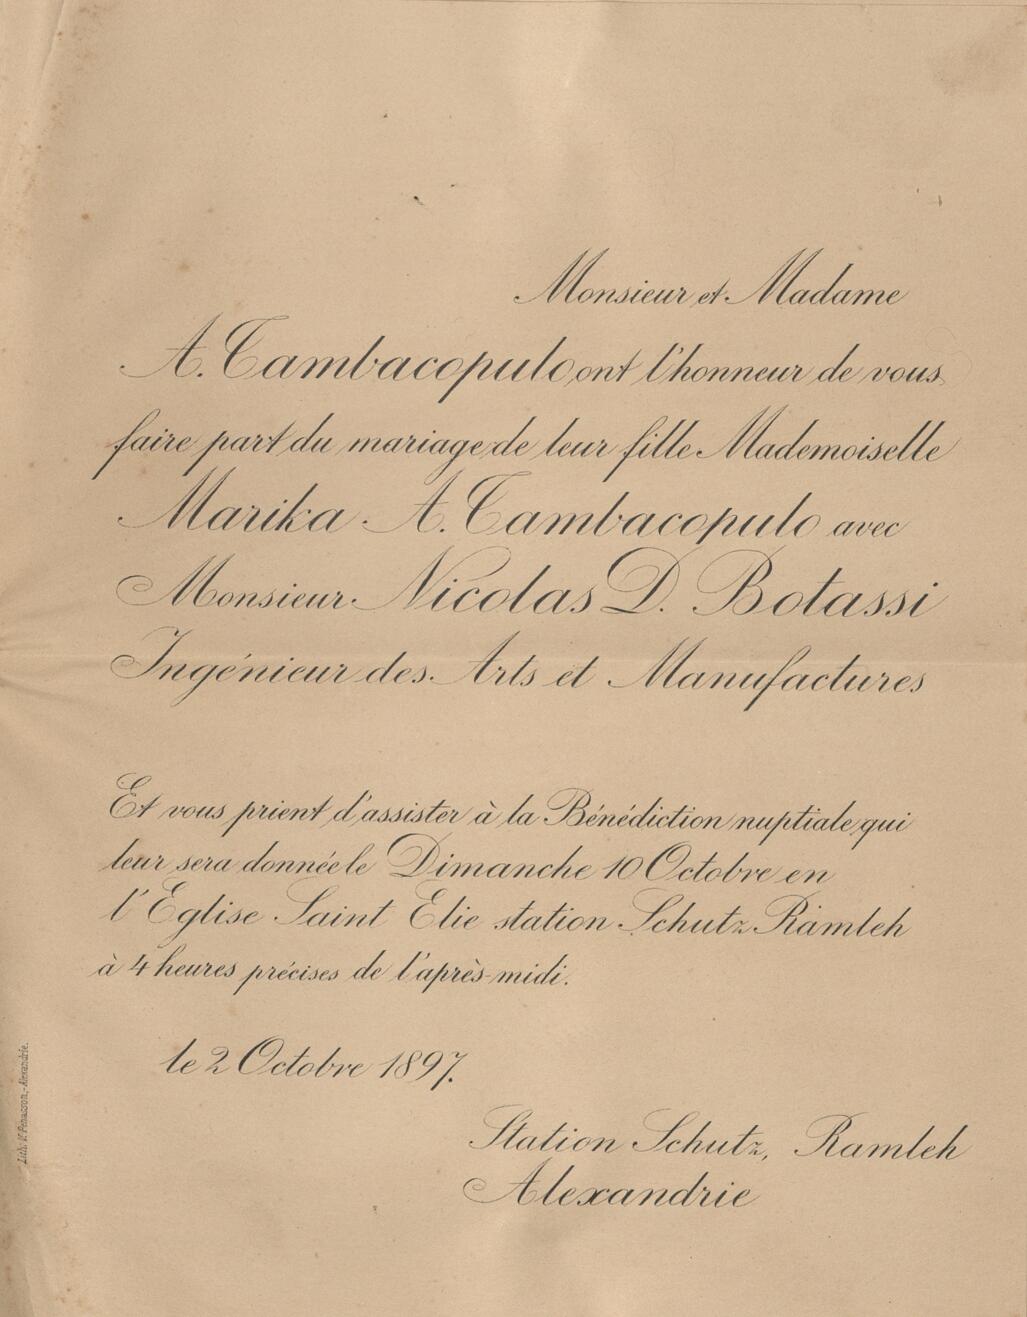 Monsieur et Madame
A. Tambacopulo ont l'honneur de vous
faire part du mariage de leur fille Mademoiselle
Marika A. Tambacopulo avec
Monsieur Nicolas D. Botassi
Ingénieur des Arts et Manufactures
Et vous prient d'assister à la Bénédiction nuptiale qui
leur sera donnée le Dimanche 10 Octobre en
l'Eglise Saint Elie station Schutz Ramleh
à 4 heures précises de l'après-midi.
le 2 Octobre 1897.
Station Schutz, Ramleh
Alexandrie
Lith. V. Penasson, - Alexandrie.